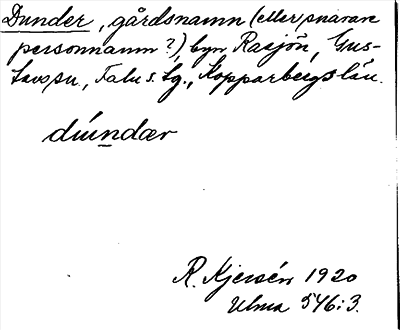 Dunder, gårdsnamn (eller snarare
personnamn?), byn Rasjön, Gus-
tavs sn, Falu s. lg., Kopparbergs län.
dúndær
R. Kjersén 1920
Ulma 546:3.